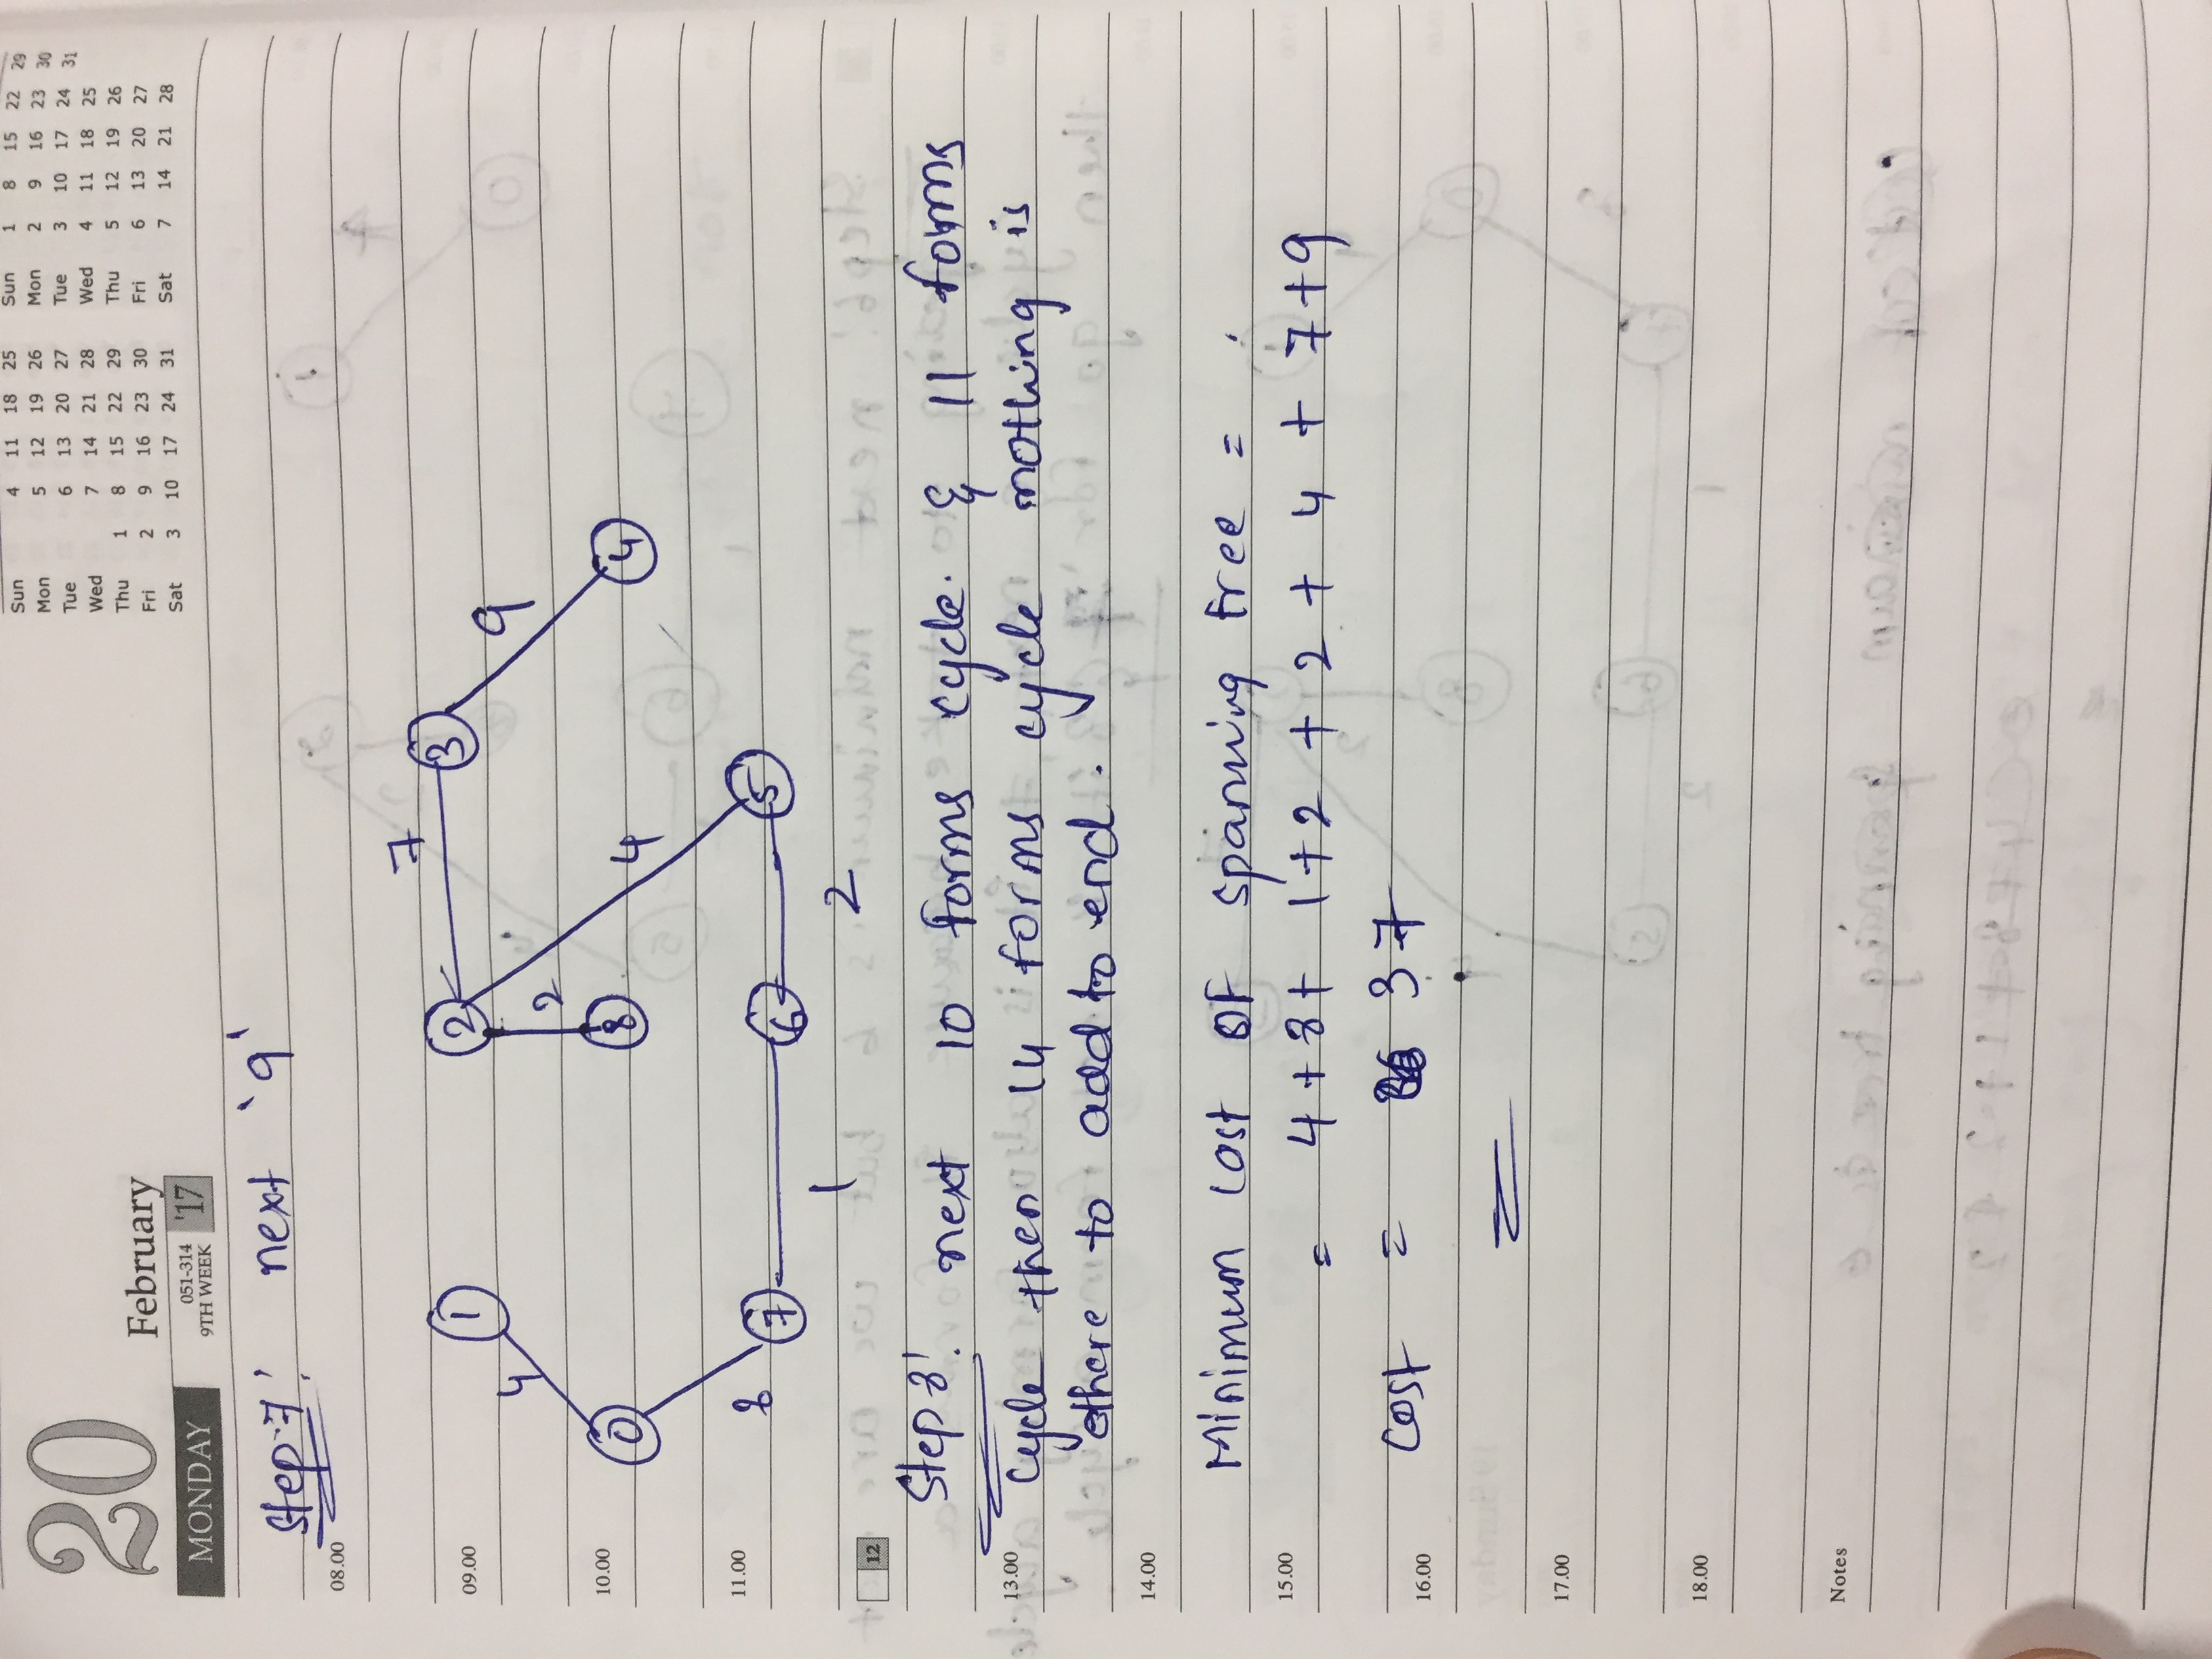 20
February
MONDAY
051-314
9TH WEEK
'17
Sun 4 11 18 25
Mon 5 12 19 26
Tue 6 13 20 27
Wed 7 14 21 28
Thu 1 8 15 22 29
Fri 2 9 16 23 30
Sat 3 10 17 24 31
Sun 1 8 15 22 29
Mon 2 9 16 23 30
Tue 3 10 17 24 31
Wed 4 11 18 25
Thu 5 12 19 26
Fri 6 13 20 27
Sat 7 14 21 28
Step-7! next '9'
08.00
7
09.00
1 2 3
4 9
2
10.00
0 8 4
4
11.00
8
7 6 5
1 2
12
Step 8! next 10 forms cycle. & 11 forms
13.00
cycle then 14 forms cycle nothing is
there to add to end.
14.00
Minimum cost of spanning tree =
15.00
= 4+8+ 1+2 + 2 + 4 + 7+9
cost = 37
16.00
17.00
18.00
Notes